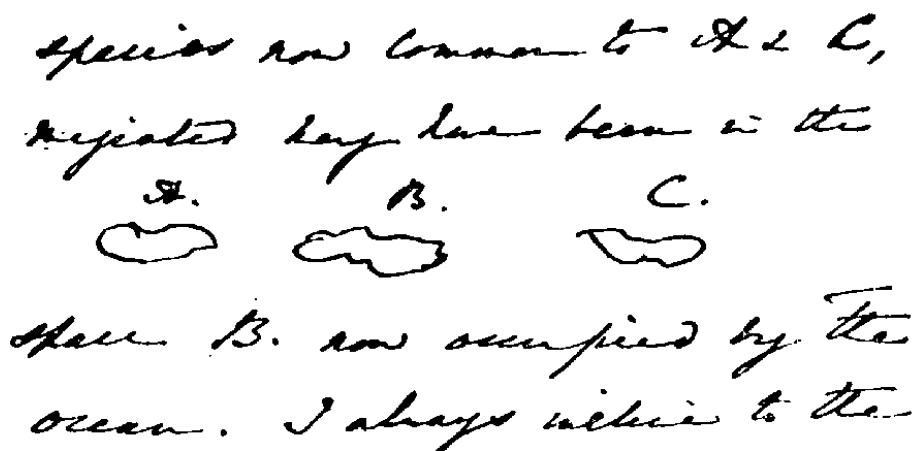 species now common to A & C,
have been in the
A. B. C.
space B. now occupied by the
ocean. I always incline to the